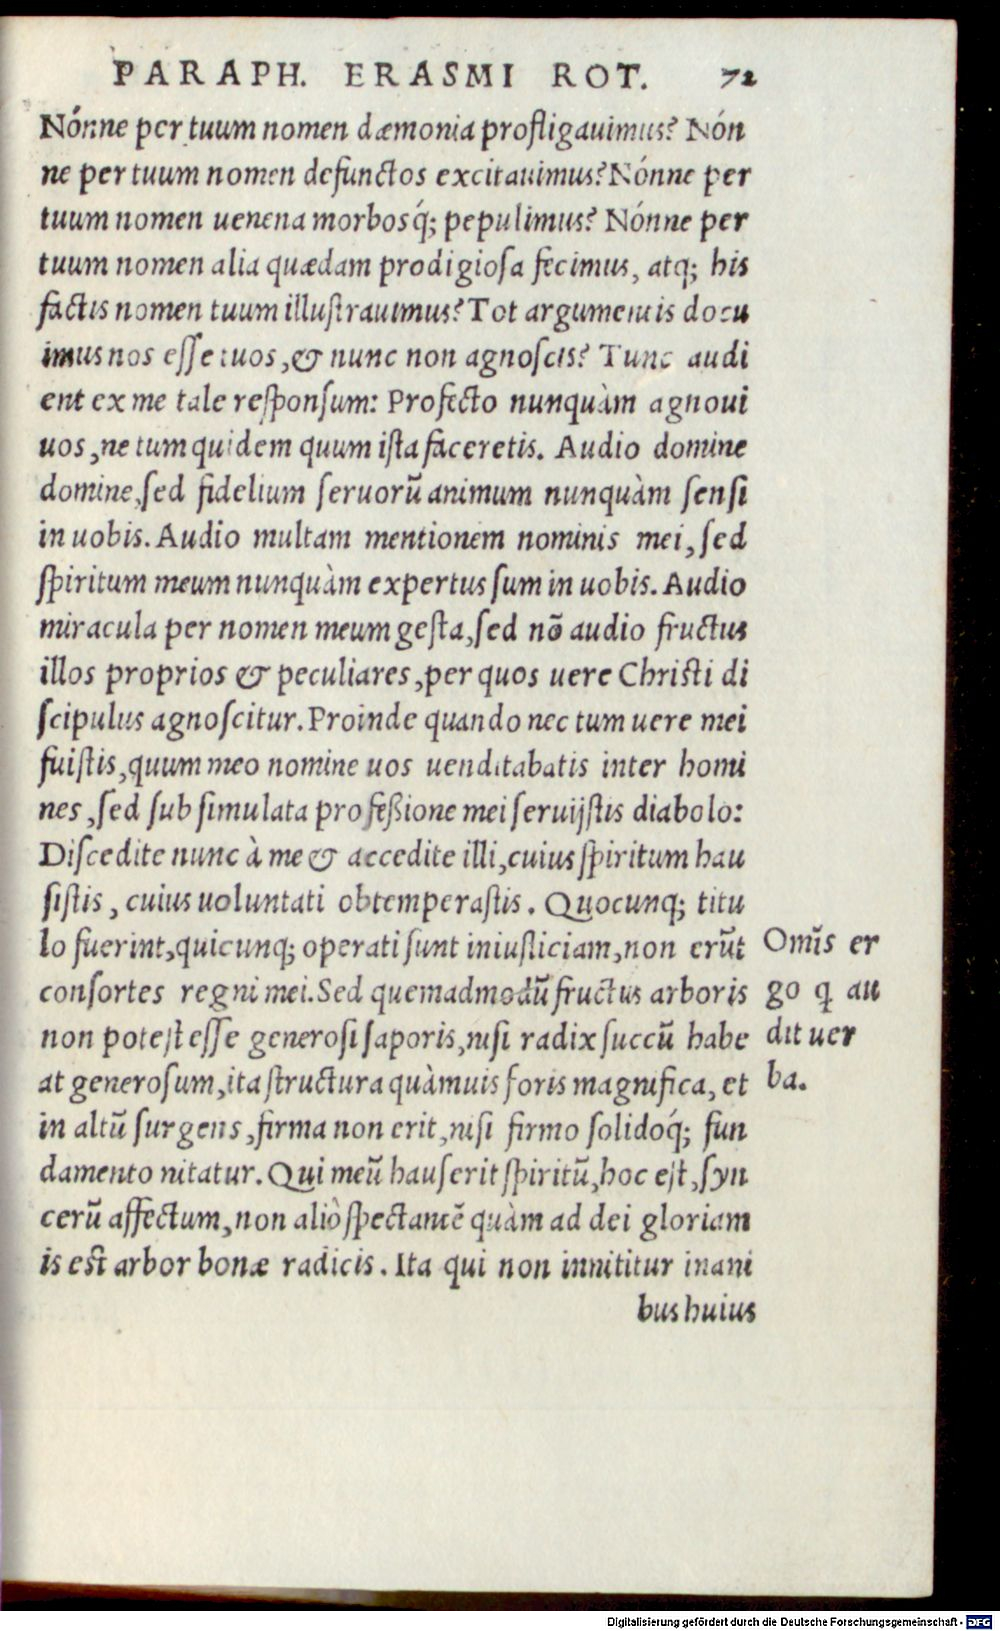 PARAPH. ERASMI ROT. 72
Nónne per tuum nomen dæmonia profligauimus? Nón
ne per tuum nomen defunctos excitauimus? Nónne per
tuum nomen uenena morbosq́; pepulimus? Nónne per
tuum nomen alia quædam prodigiosa fecimus, atq; his
factis nomen tuum illustrauimus? Tot argumentis docu
imus nos esse tuos, & nunc non agnoscis? Tunc audi
ent ex me tale responsum: Profecto nunquàm agnoui
uos, ne tum quidem quum ista faceretis. Audio domine
domine, sed fidelium seruorũ animum nunquàm sensi
in uobis. Audio multam mentionem nominis mei, sed
spiritum meum nunquàm expertus sum in uobis. Audio
miracula per nomen meum gesta, sed nõ audio fructus
illos proprios & peculiares, per quos uere Christi di
scipulus agnoscitur. Proinde quando nec tum uere mei
fuistis, quum meo nomine uos uenditabatis inter homi
nes, sed sub simulata professione mei seruijstis diabolo:
Discedite nunc à me & accedite illi, cuius spiritum hau
sistis, cuius uoluntati obtemperastis. Quocunq; titu
lo fuerint, quicunq; operati sunt iniusticiam, non erũt
consortes regni mei. Sed quemadmodũ fructus arboris
non potest esse generosi saporis, nisi radix succũ habe
at generosum, ita structura quàmuis foris magnifica, et
in altũ surgens, firma non erit, nisi firmo solidoq́; fun
damento nitatur. Qui meũ hauserit spiritũ, hoc est, syn
cerũ affectum, non aliò spectantẽ quàm ad dei gloriam
is est arbor bonæ radicis. Ita qui non innititur inani
bus huius
Omĩs er
go q au
dit uer
ba.
Digitalisierung gefördert durch die Deutsche Forschungsgemeinschaft - DFG